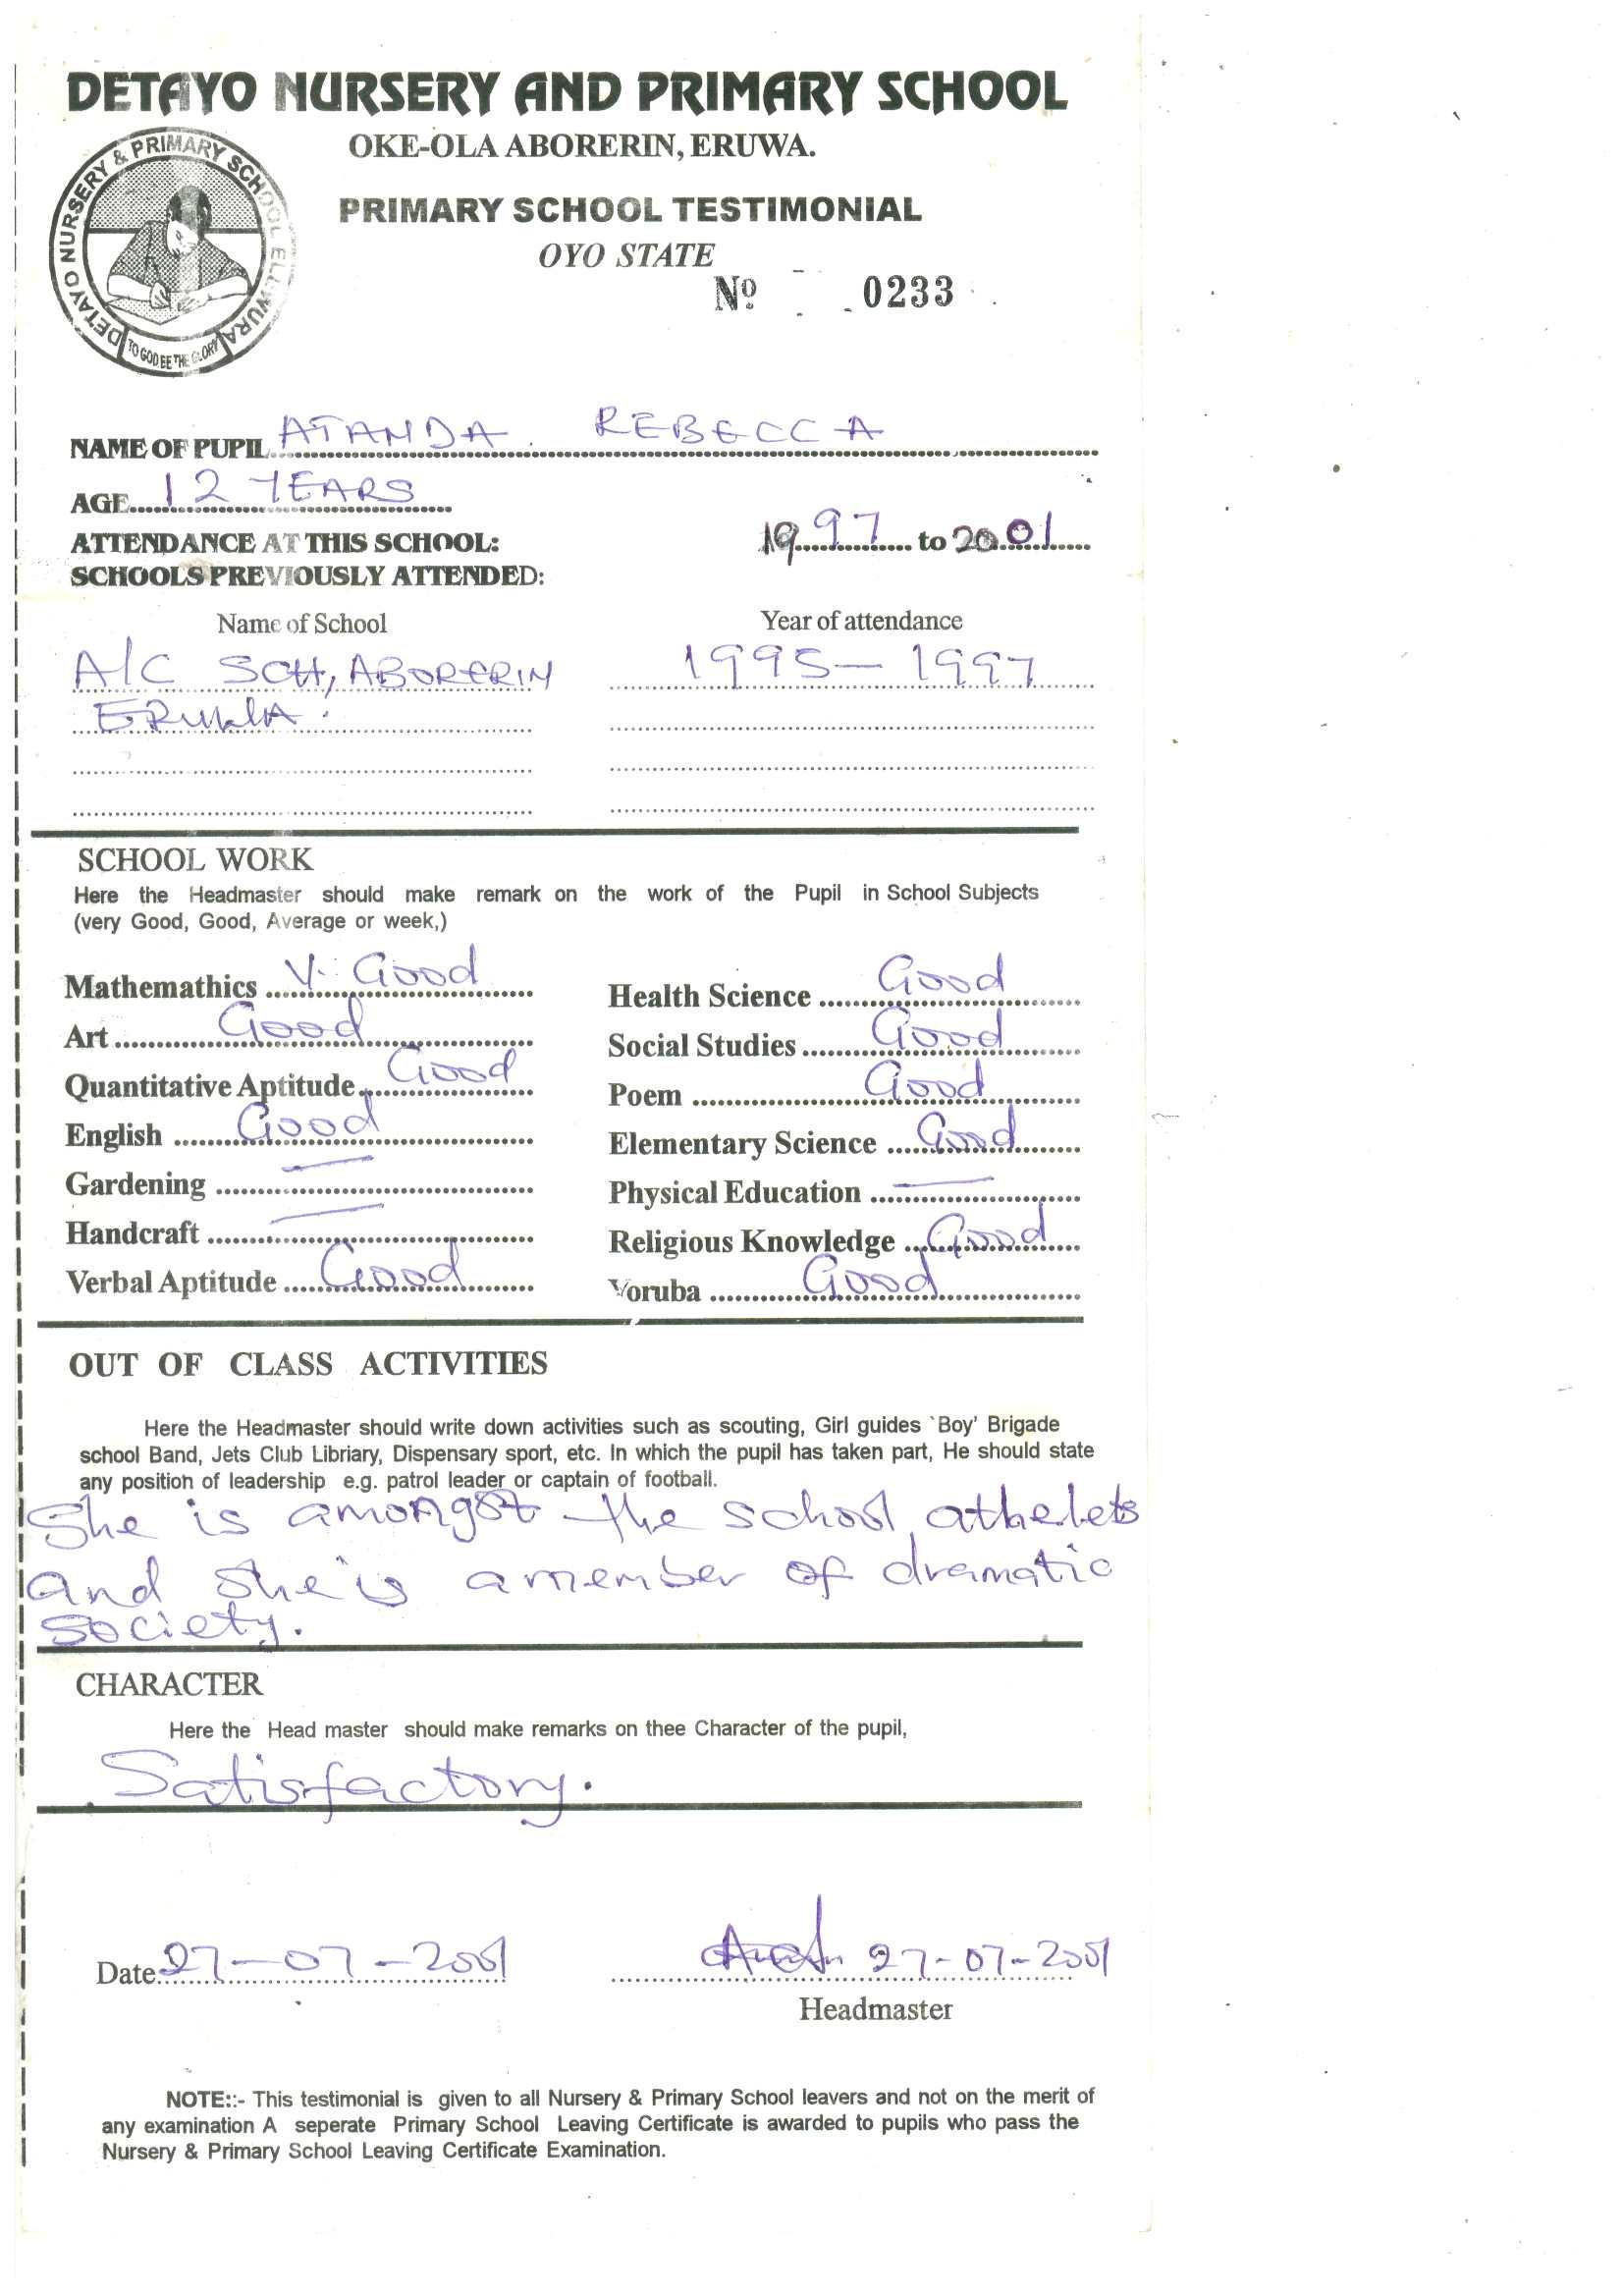 DETAYO NURSERY AND PRIMARY SCHOOL
OKE-OLA ABORERIN, ERUWA.
DETAYO NURSERY & PRIMARY SCHOOL
TO GOD BE THE GLORY
PRIMARY SCHOOL TESTIMONIAL
OYO STATE
No 0233
NAME OF PUPIL ATANDA REBECCA
AGE 12 YEARS
ATTENDANCE AT THIS SCHOOL: 1997 to 2001
SCHOOLS PREVIOUSLY ATTENDED:
Name of School Year of attendance
A/C SCH, ABORERIN 1995 - 1997
ERUWA.
SCHOOL WORK
Here the Headmaster should make remark on the work of the Pupil in School Subjects
(very Good, Good, Average or week,)
Mathemathics V. Good Health Science Good
Art Good Social Studies Good
Quantitative Aptitude Good Poem Good
English Good Elementary Science Good
Gardening — Physical Education —
Handcraft — Religious Knowledge Good
Verbal Aptitude Good Yoruba Good
OUT OF CLASS ACTIVITIES
Here the Headmaster should write down activities such as scouting, Girl guides `Boy' Brigade
school Band, Jets Club Libriary, Dispensary sport, etc. In which the pupil has taken part, He should state
any position of leadership e.g. patrol leader or captain of football.
She is amongst the school athelets
and she is a member of dramatic
society.
CHARACTER
Here the Head master should make remarks on thee Character of the pupil,
Satisfactory.
Date 27-07-2001 27-07-2001
Headmaster
NOTE::- This testimonial is given to all Nursery & Primary School leavers and not on the merit of
any examination A seperate Primary School Leaving Certificate is awarded to pupils who pass the
Nursery & Primary School Leaving Certificate Examination.